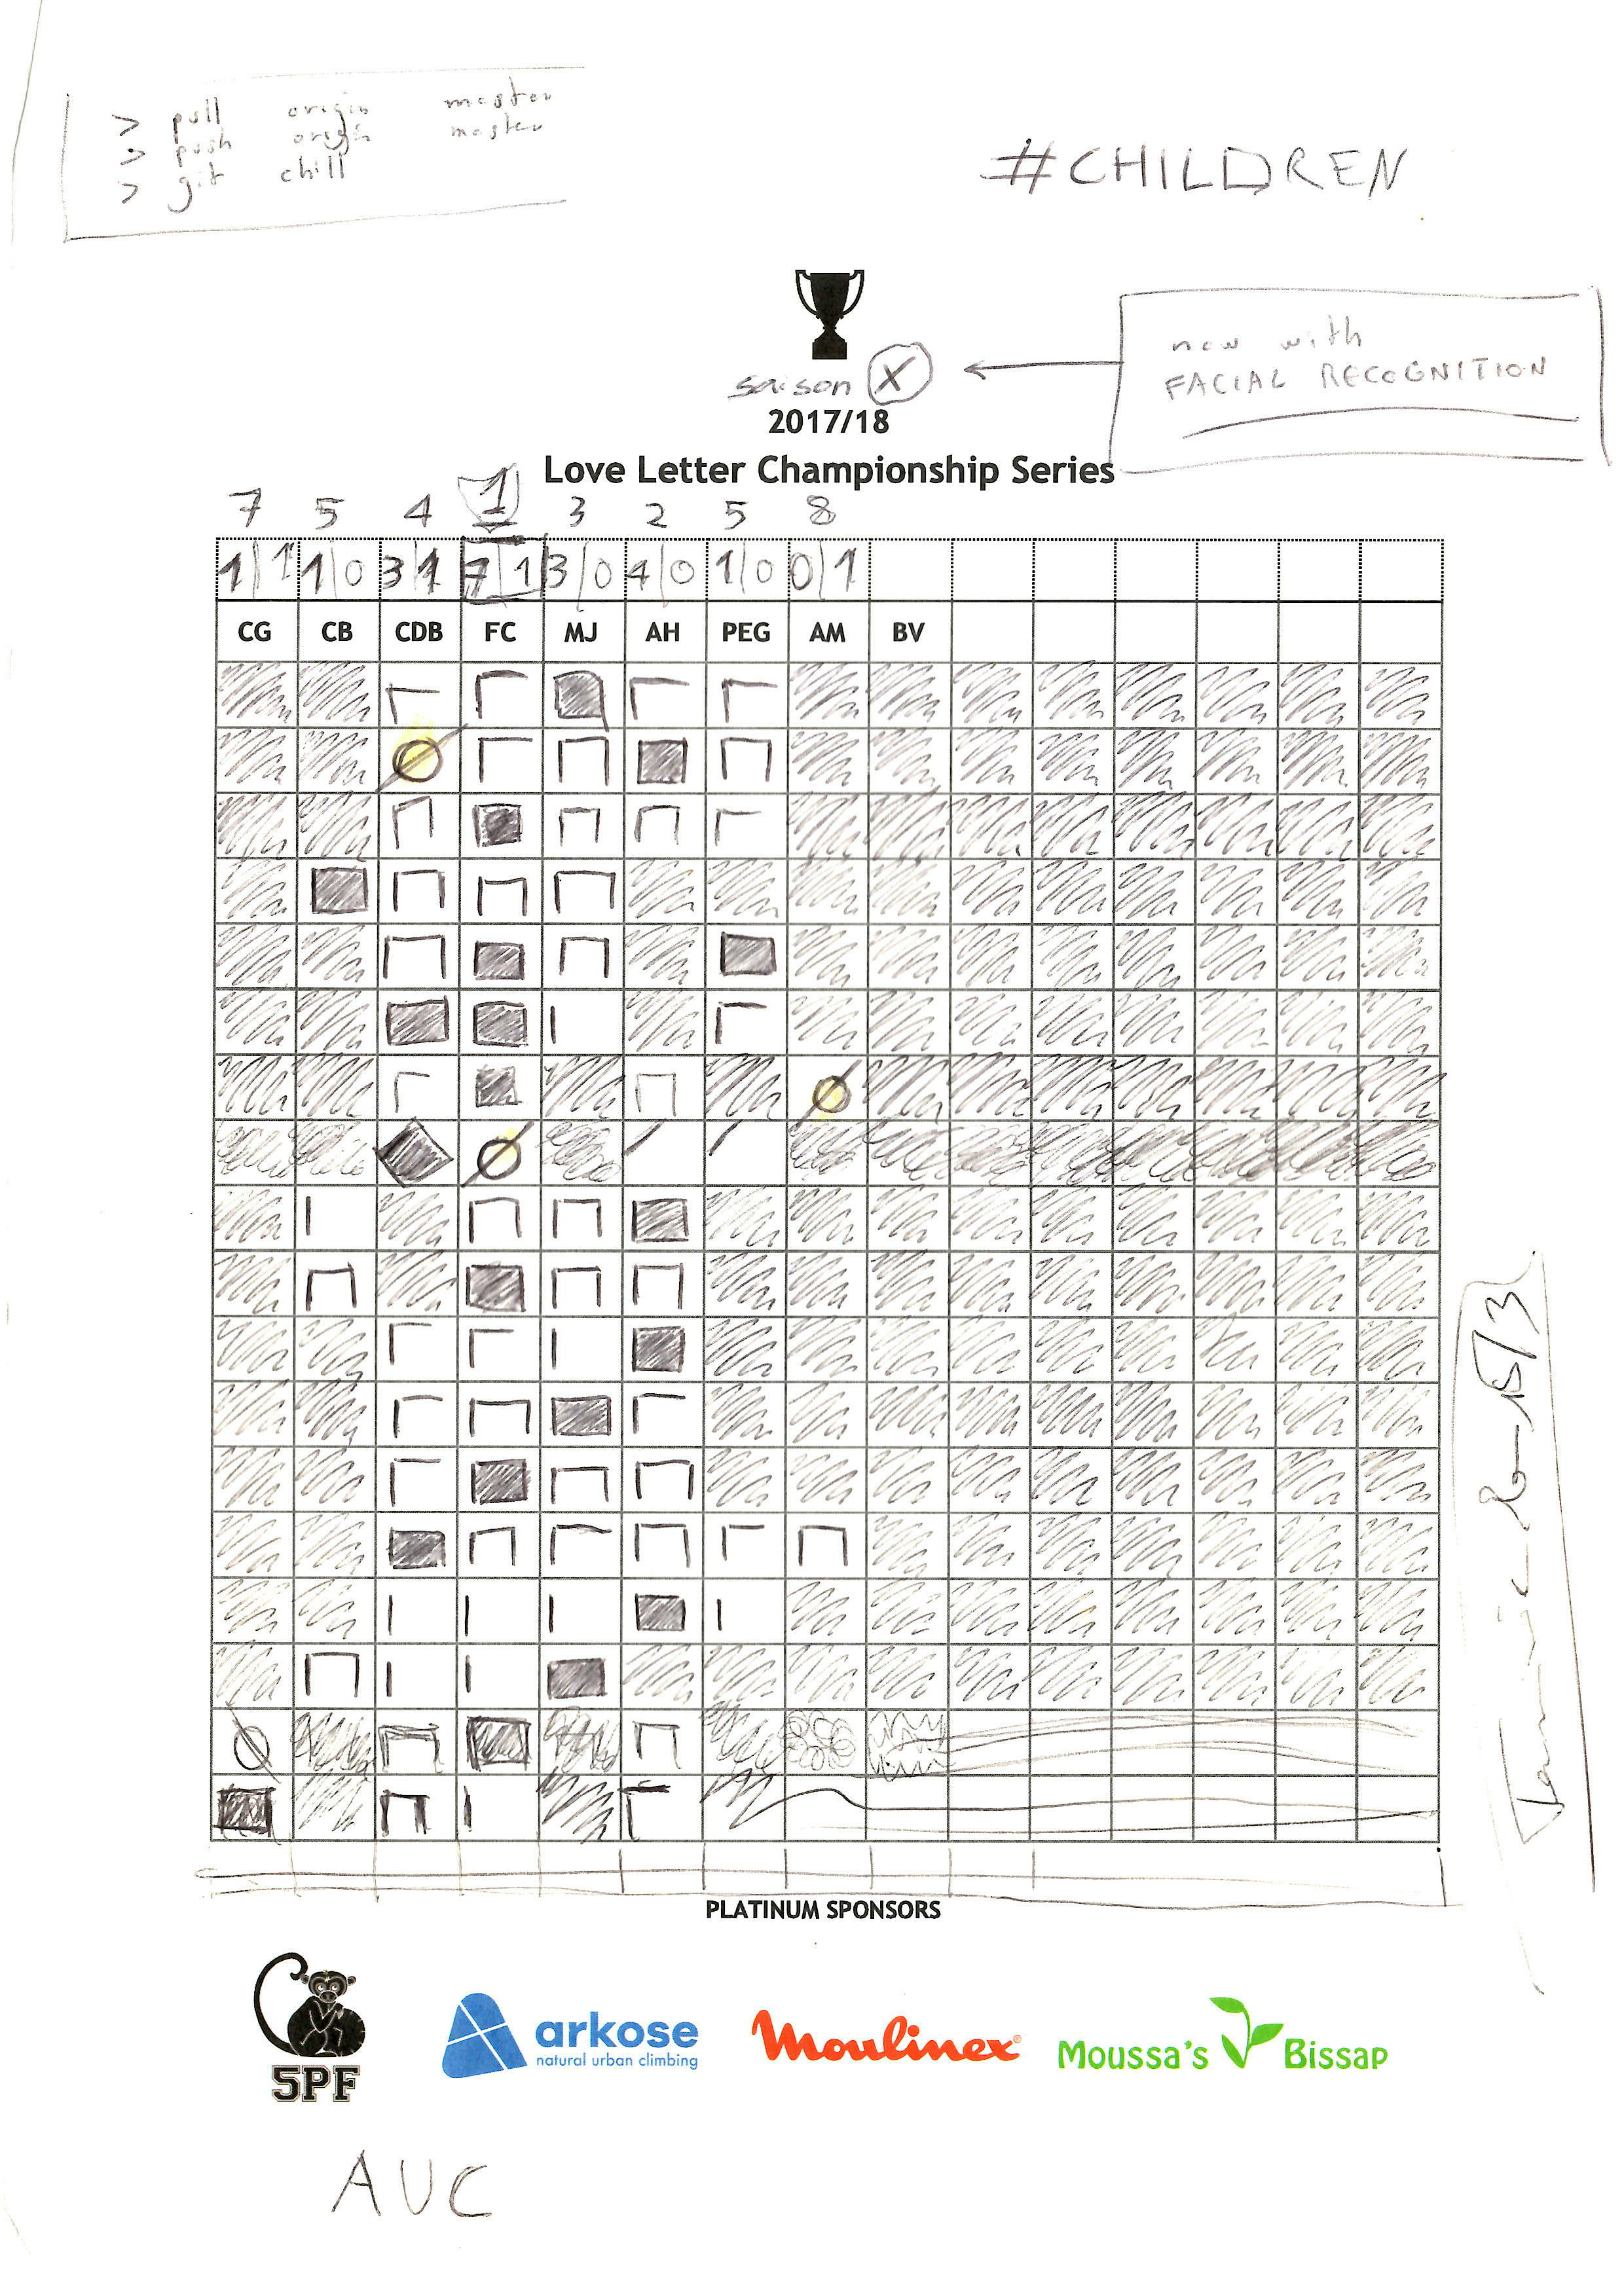 > pull origin master
> push origin master
> git chill
#CHILDREN
saison X
now with
FACIAL RECOGNITION
2017/18
Love Letter Championship Series
7 5 4 1 3 2 5 8
1/1 1/0 3/1 7/1 3/0 4/0 1/0 0/1
CG CB CDB FC MJ AH PEG AM BV
PLATINUM SPONSORS
5PF
arkose
natural urban climbing
Moulinex®
Moussa's Bissap
AUC